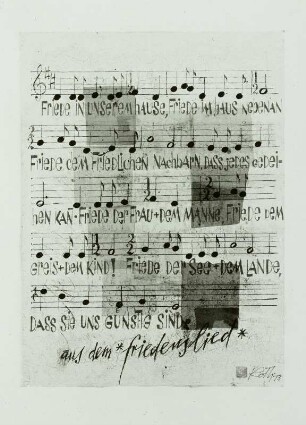 Friede in unserem Hause, Friede im Haus nebenan
Friede dem friedlichen Nachbarn, dass jedes gedei-
hen kan - Friede der Frau + dem Manne, Friede dem
Greis + dem Kind! Friede der See + dem Lande,
dass sie uns günstig sind
aus dem *friedenslied*